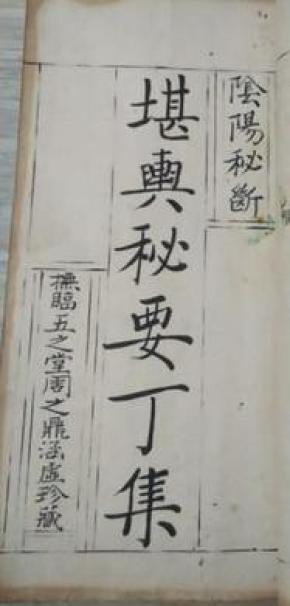 陰陽秘斷
堪輿秘要丁集
撫臨五之堂周之鼎涵虛珍藏